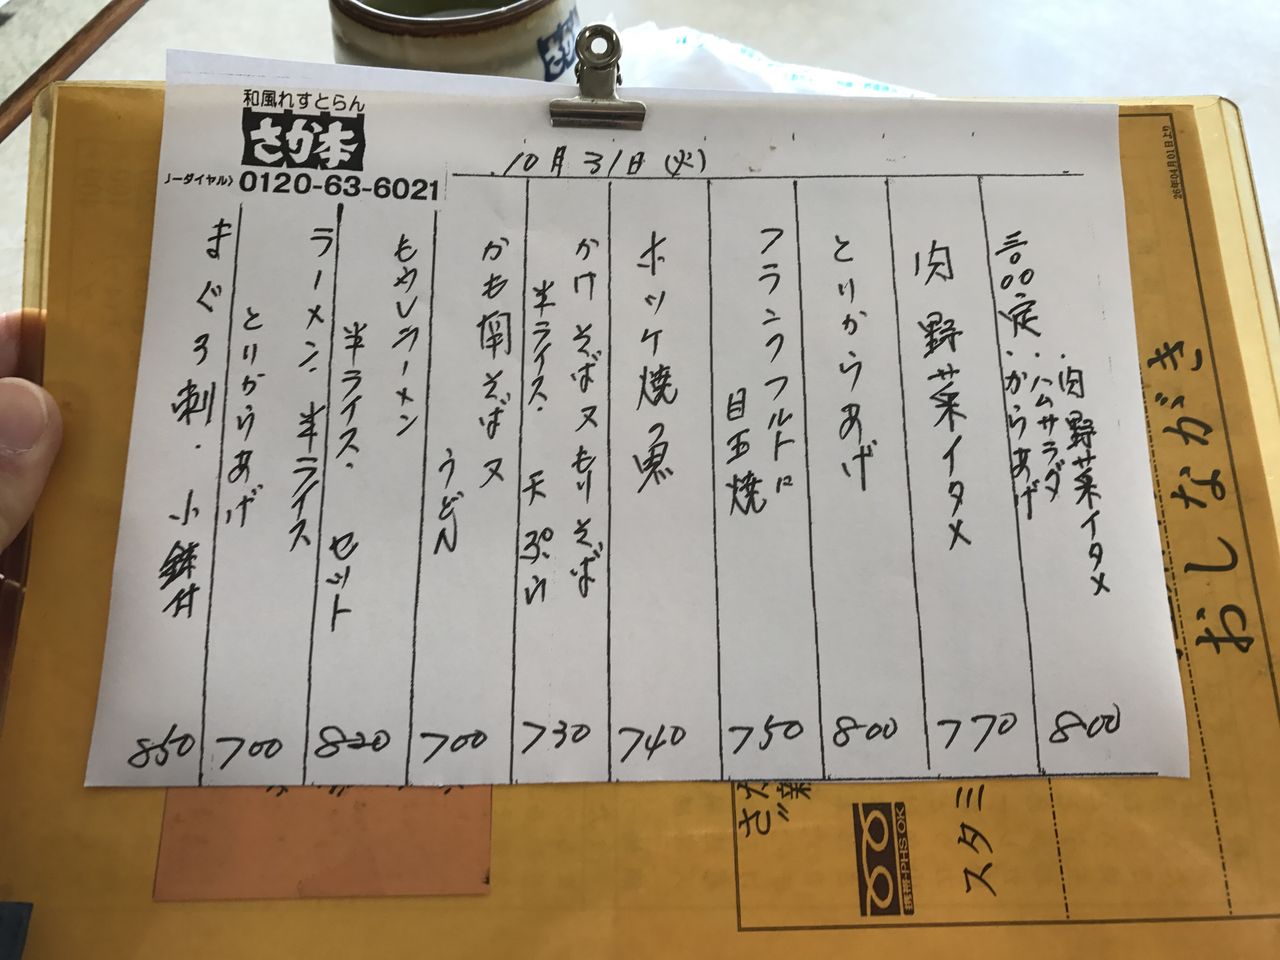 和風れすとらん
さか本
ーダイヤル〉0120-63-6021
10月31日(火)
定
・肉野菜イタメ
・ハムサラダ
・からあげ
800
肉野菜イタメ
770
とりからあげ
800
フランクフルトに
目玉焼
750
ホッケ焼魚
740
かけそば又もりそば
半ライス・天ぷら
730
かも南そば又
うどん
700
もやしラーメン
半ライス・セット
820
ラーメン、半ライス
とりからあげ
700
まぐろ刺・小鉢付
850
おしながき
26年04月01日より
スタミ
携帯・PHS OK
さか